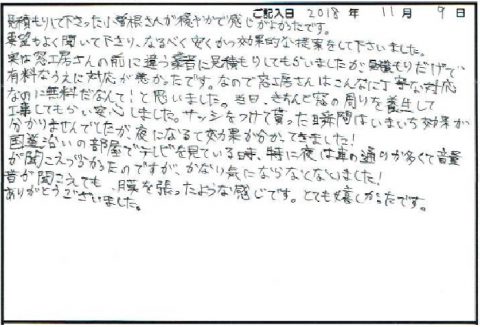 ご記入日 2018 年 11 月 9 日
見積もりして下さった小曽根さんが穏やかで感じがよかったです。
要望もよく聞いて下さり、なるべく安くかつ効果的な提案をして下さいました。
実は窓工房さんの前に違う業者に見積もりしてもらいましたが、見積もりだけで
有料なうえに対応が悪かったです。なので窓工房さんはこんなに丁寧な対応
なのに無料だなんて!と思いました。当日、きちんと窓の周りを養生して
工事してもらい安心しました。サッシをつけて貰った瞬間はいまいち効果が
分かりませんでしたが夜になると効果が分かってきました!
国道沿いの部屋でテレビを見ている時、特に夜は車の通りが多くて音量
が聞こえづらかったのですが、かなり気にならなくなりました!
音が聞こえても、膜を張ったような感じです。とても嬉しかったです。
ありがとうございました。